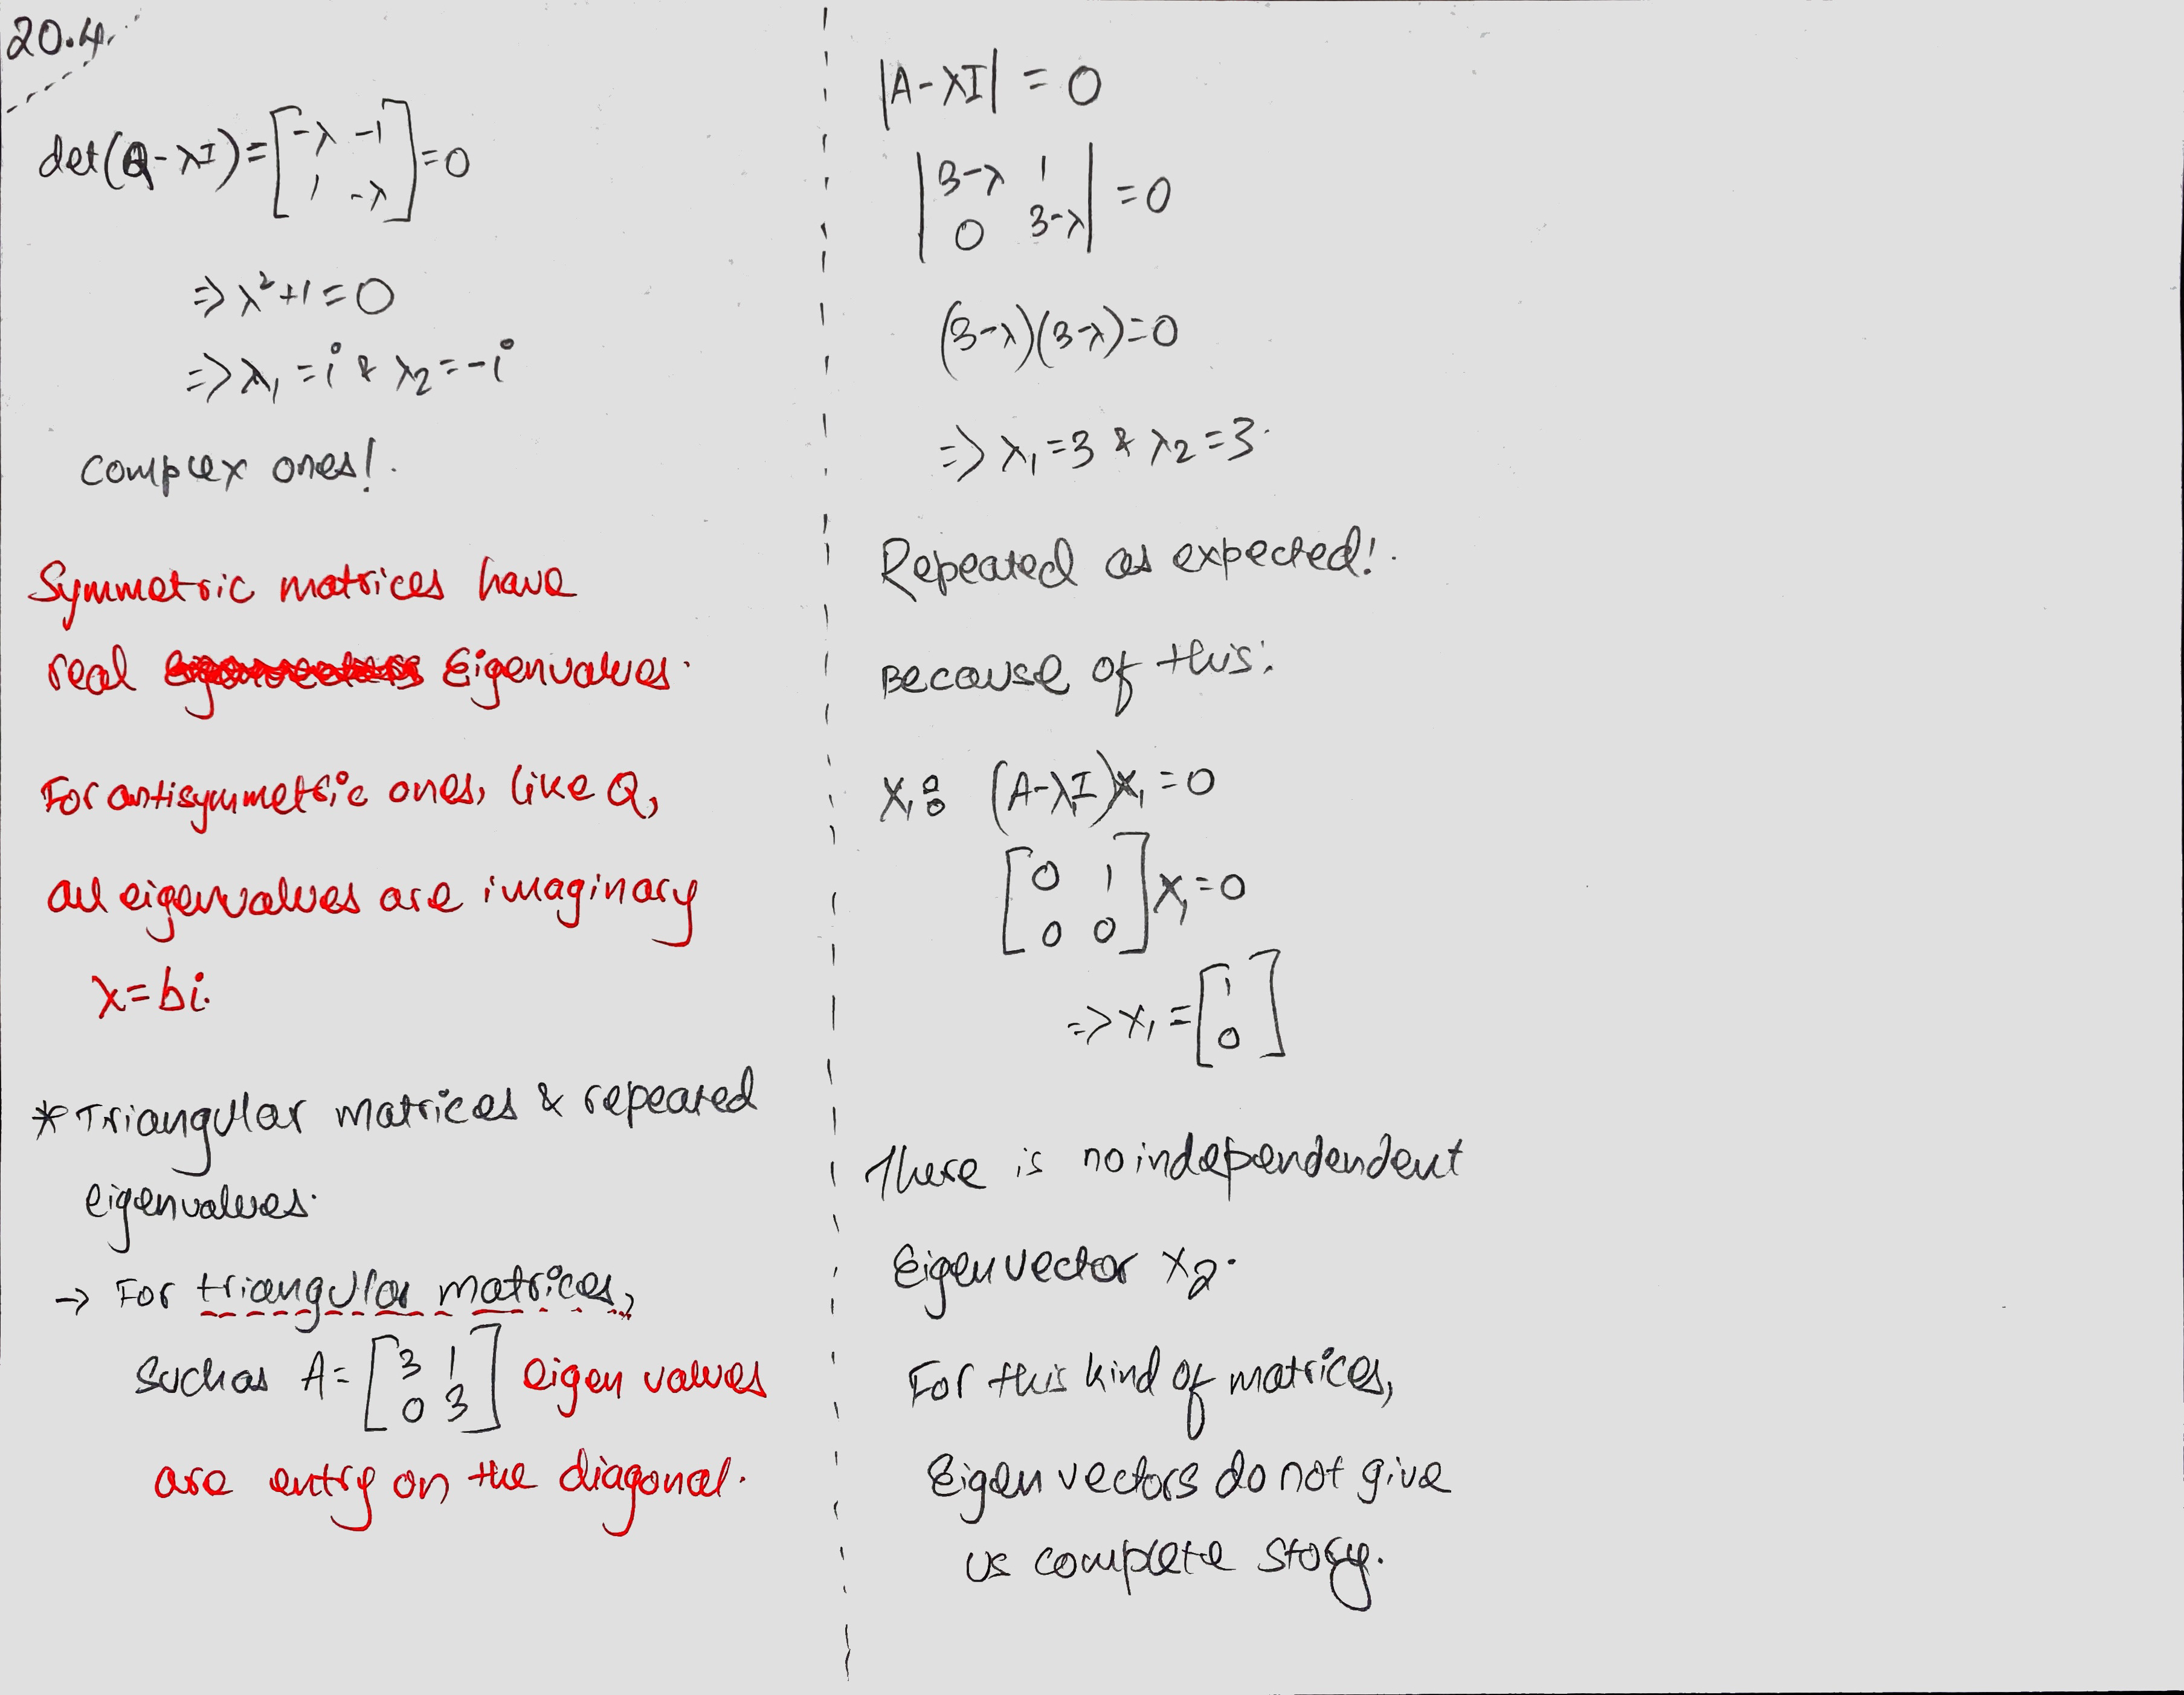 20.4.
det(Q-λI)=[-λ -1
1 -λ]=0
⇒λ²+1=0
⇒λ₁=i & λ₂=-i
complex ones!.
Symmetric matrices have
real Eigenvalues.
For antisymmetric ones, like Q,
all eigenvalues are imaginary
λ=bi.
* Triangular matrices & repeated
eigenvalues.
→ For triangular matrices,
Such as A=[3 1
0 3] eigen values
are entry on the diagonal.
|A-λI| = 0
|3-λ 1
0 3-λ| =0
(3-λ)(3-λ)=0
⇒ λ₁=3 & λ₂=3.
Repeated as expected!.
Because of this:
X₁: (A-λI)X₁=0
[0 1
0 0]X₁=0
⇒X₁=[1
0]
There is no independendent
Eigenvector X₂.
For this kind of matrices,
Eigen vectors do not give
us complete story.